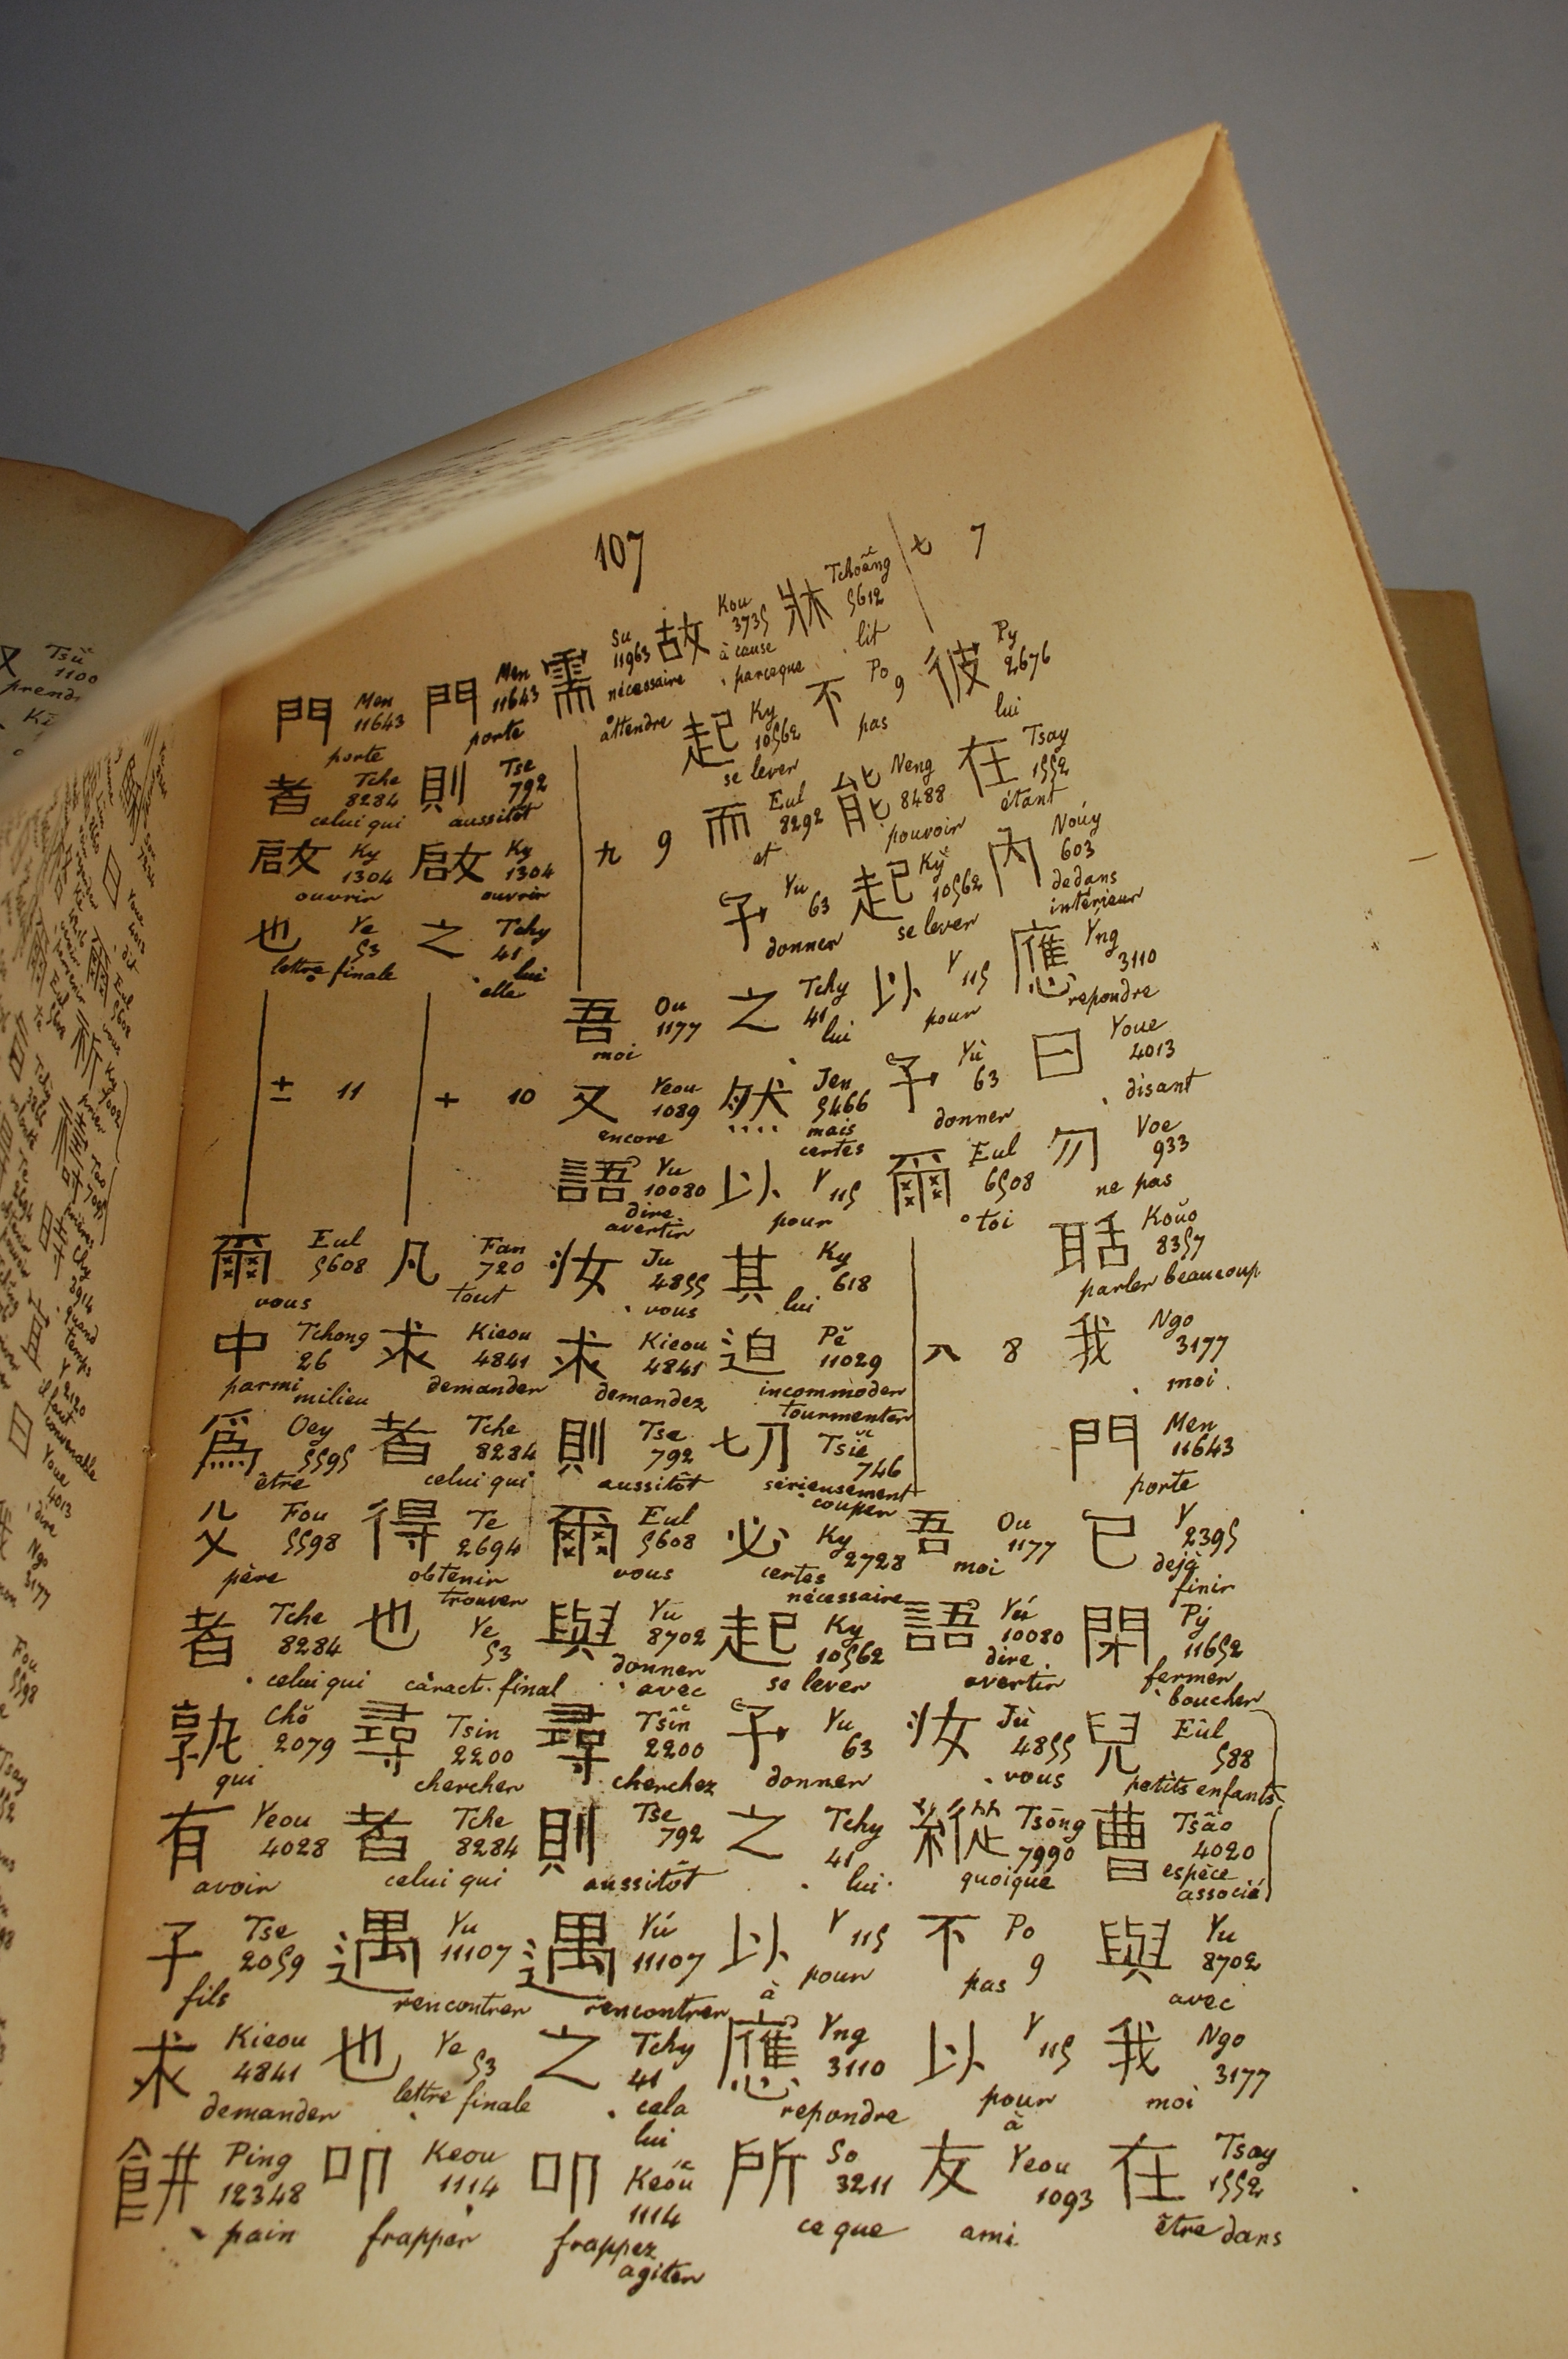 107
七 7
彼 Py 2676 lui
在 Tsay 1552 étant
內 Noúy 603 dedans intérieur
應 Yng 3110 repondre
曰 Youe 4013 disant
勿 Voe 933 ne pas
聒 Koŭo 8357 parler beaucoup
我 Ngo 3177 moi
門 Men 11643 porte
已 Y 2395 dejà finir
閉 Pý 11652 fermer boucher
兒 Eûl 588 petits enfants
曹 Tsâo 4020 espèce associé
與 Yu 8702 avec
我 Ngo 3177 moi
在 Tsay 1552 être dans
牀 Tchoâng 5612 lit
不 Po 9 pas
能 Neng 8488 pouvoir
起 Ky 10562 se lever
以 Y 115 pour
予 Yù 63 donner
爾 Eul 6508 toi
八 8
吾 Ou 1177 moi
語 Yú 10080 dire avertir
汝 Jù 4855 vous
縱 Tsōng 7990 quoique
不 Po 9 pas
以 Y 115 pour à
友 Yeou 1093 ami
故 Kou 3735 à cause parceque
起 Ky 10562 se lever
而 Eul 8292 et
予 Yu 63 donner
之 Tchy 41 lui
然 Jen 5466 mais certes
以 Y 115 pour
其 Ky 618 lui
迫 Pĕ 11029 incommoder tourmenter
切 Tsiĕ 746 sérieusement couper
必 Ky 2728 certes nécessaire
起 Ky 10562 se lever
予 Yu 63 donner
之 Tchy 41 lui
以 Y 115 pour à
應 Yng 3110 repondre
所 So 3211 ce que
需 Su 11963 nécessaire attendre
九 9
吾 Ou 1177 moi
又 Yeou 1089 encore
語 Yu 10080 dire avertir
汝 Ju 4855 vous
求 Kieou 4841 demandez
則 Tse 792 aussitôt
爾 Eul 5608 vous
與 Yu 8702 donner avec
尋 Tsîn 2200 cherchez
則 Tse 792 aussitôt
遇 Yú 11107 rencontrer
之 Tchy 41 cela lui
叩 Keóu 1114 frappez agiter
門 Men 11643 porte
則 Tse 792 aussitôt
啟 Ky 1304 ouvrir
之 Tchy 41 lui elle
十 10
凡 Fan 720 tout
求 Kieou 4841 demander
者 Tche 8284 celui qui
得 Te 2694 obtenir trouver
也 Ye 53 caract. final
尋 Tsin 2200 chercher
者 Tche 8284 celui qui
遇 Yu 11107 rencontrer
也 Ye 53 lettre finale
叩 Keou 1114 frapper
門 Men 11643 porte
者 Tche 8284 celui qui
啟 Ky 1304 ouvrir
也 Ye 53 lettre finale
十一 11
爾 Eul 5608 vous
中 Tchong 26 parmi milieu
爲 Oey 5595 être
父 Fou 5598 père
者 Tche 8284 celui qui
孰 Chŏ 2079 qui
有 Yeou 4028 avoir
子 Tse 2059 fils
求 Kieou 4841 demander
餅 Ping 12348 pain